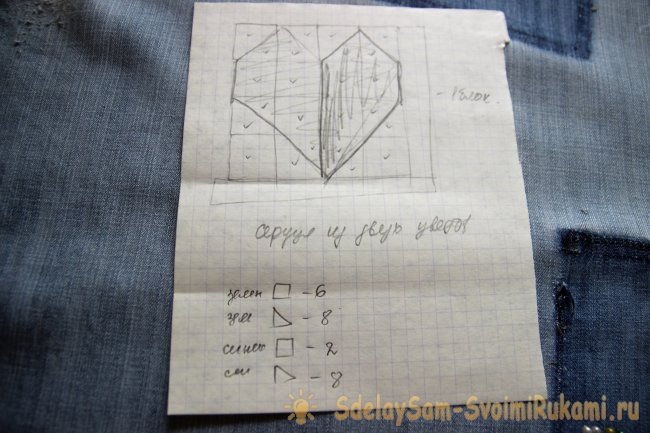 - 1 блок.
сердце из двух цветов
зелен □ - 6
зел - 8
синего □ - 2
син - 8
SdelaySam-SvoimiRukami.ru